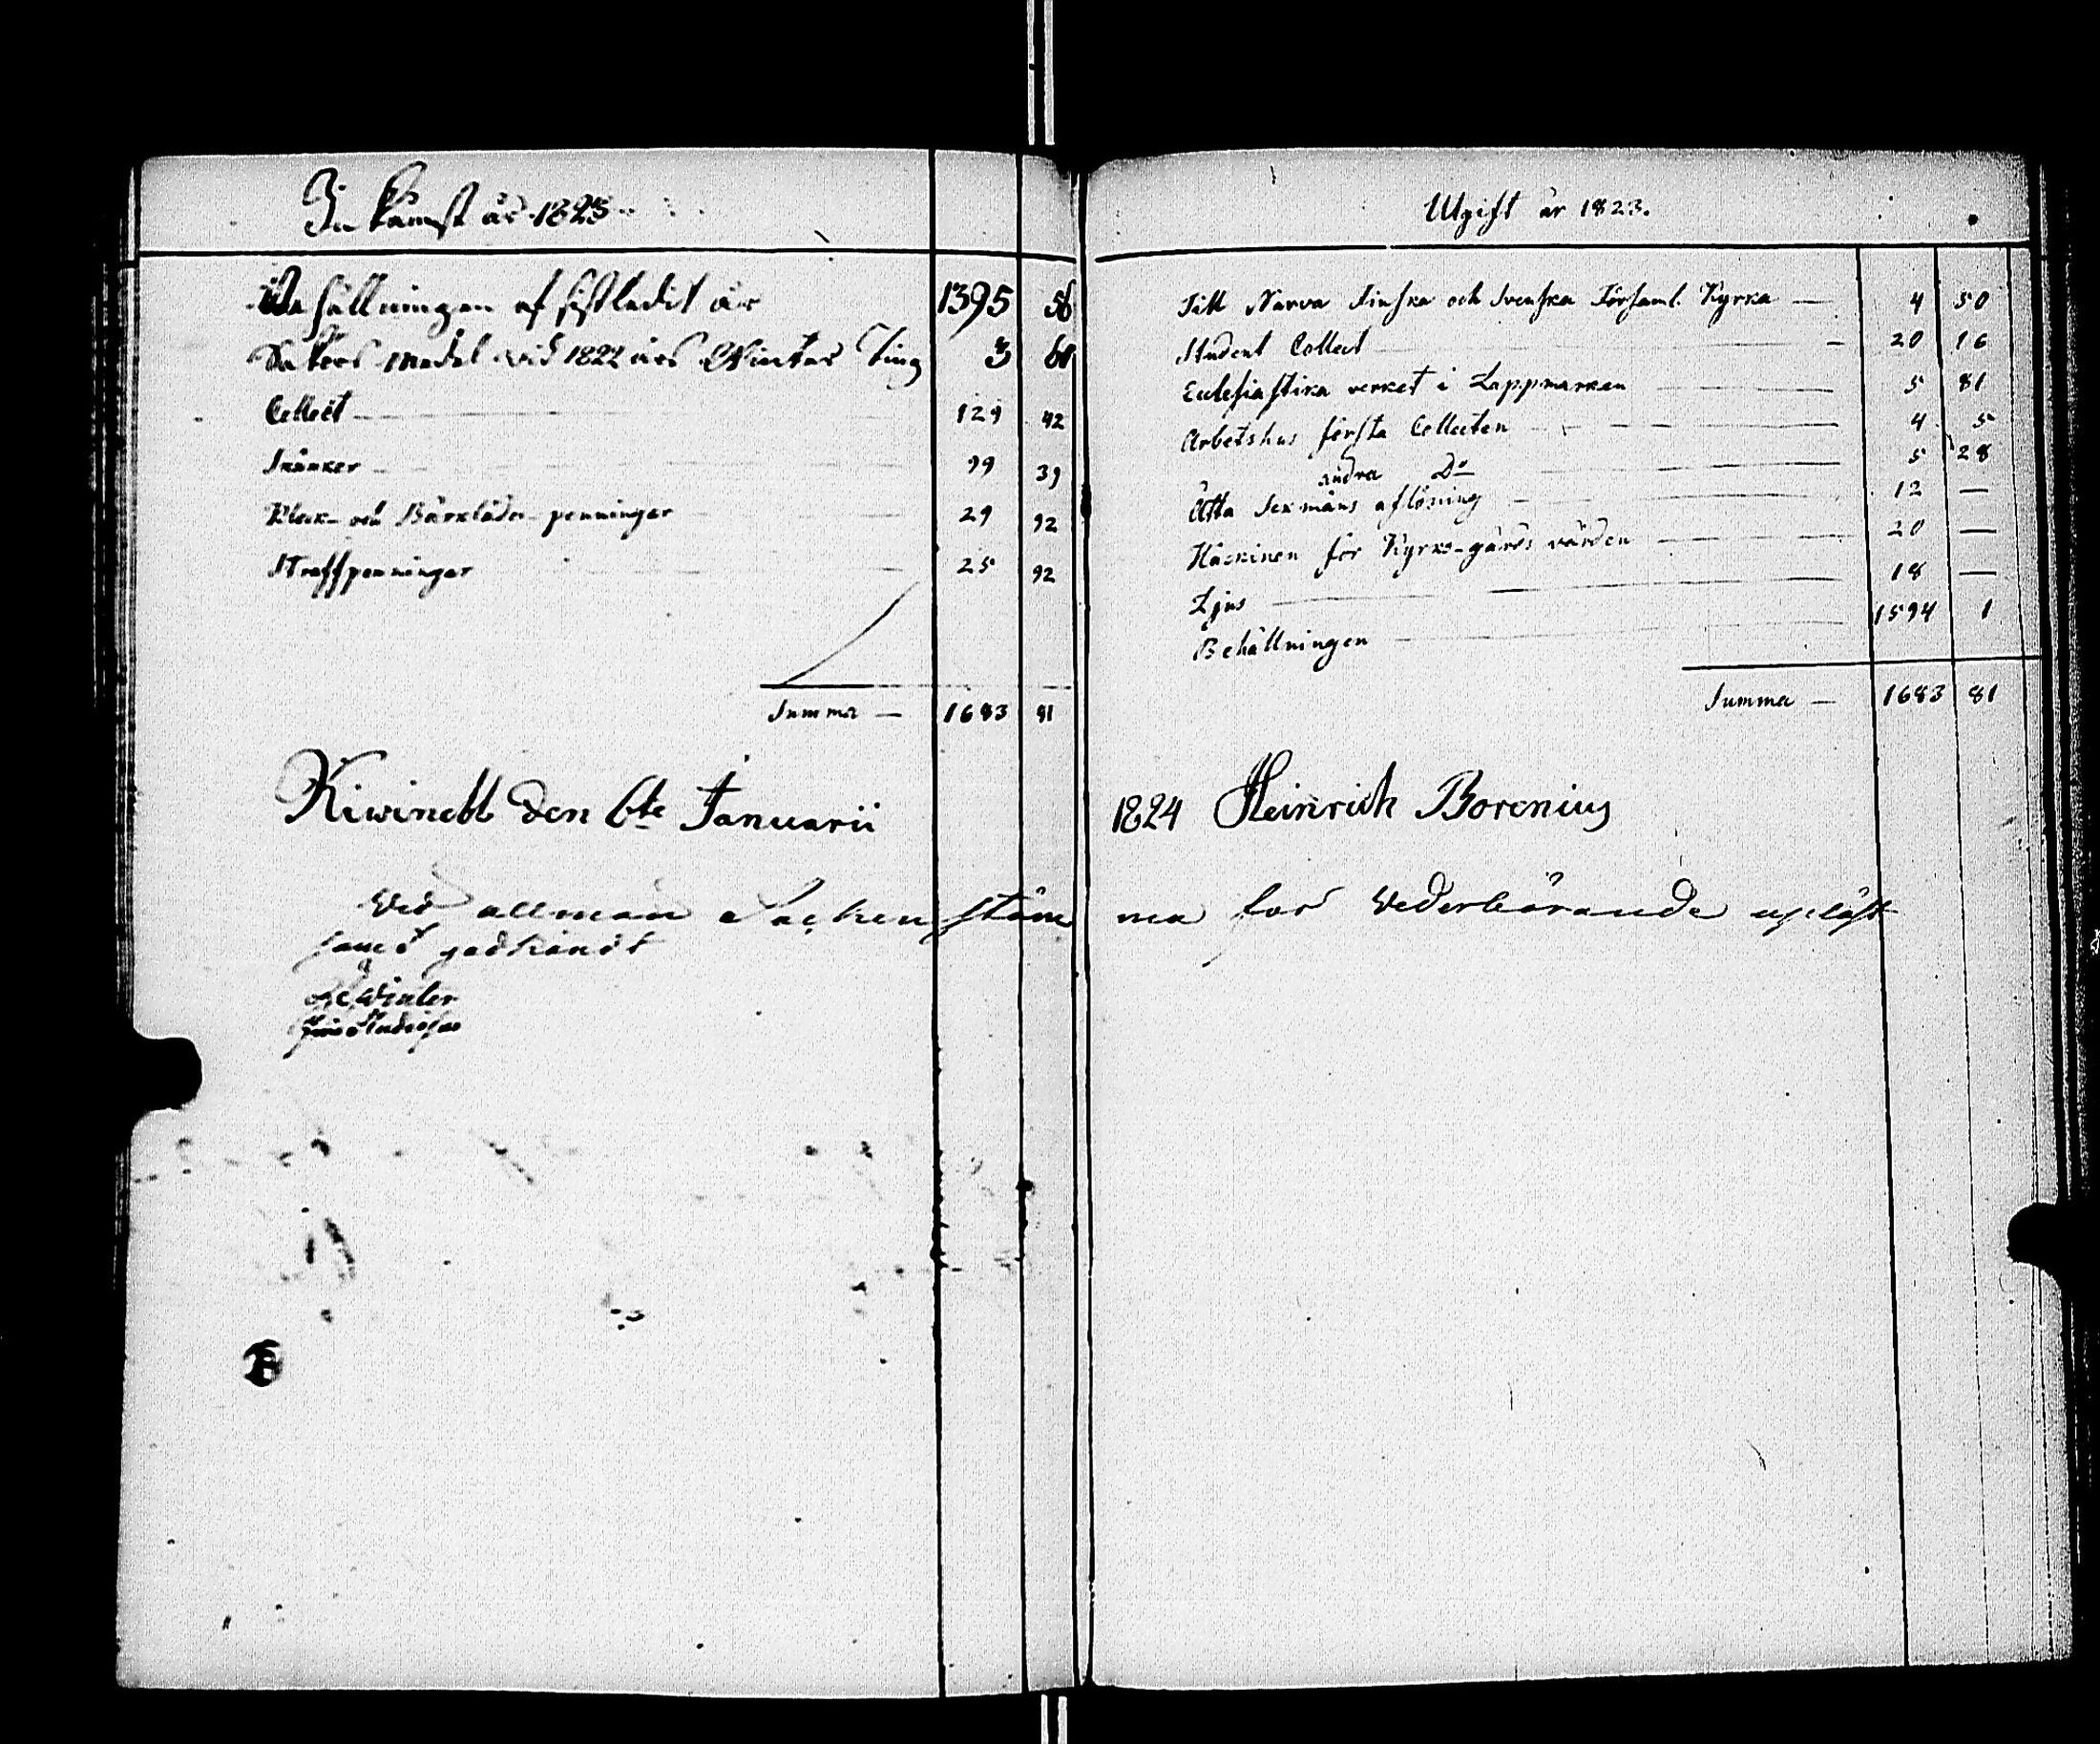 Inkomst år 1823
Behållningen af sistledit år 1395 56
Sakörs medel vid 1822 års Winter Ting 3 60
Collect — 129 42
Skänker — 99 39
Klock- och Bårkläde-penningar — 29 92
Straffpenningar — 25 92
Summa — 1683 81
Kiwinebb den 6te Januarii
Wid allmän Sockenstäm
samt godkändt
Winter
Utgift år 1823.
Till Narva Finska och Svenska Församl. Kyrka — 4 50
Student Collect — 20 16
Ecclesiastika verket i Lappmarken — 5 81
Arbetshus första Collecten — 4 5
andra Do — 5 28
Åtta Sexmäns aflöning — 12 —
Häckinen för Kyrko-gårds vården — 20 —
Ljus — 18 —
Behållningen — 1594 1
Summa — 1683 81
1824 Heinrich Borenius
ma för Wederbörande upläst